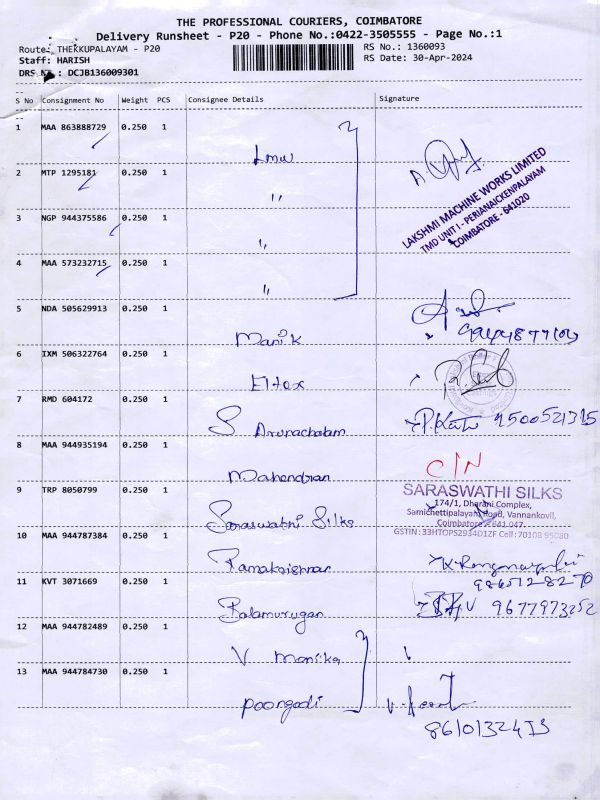 THE PROFESSIONAL COURIERS, COIMBATORE
Delivery Runsheet - P20 - Phone No.:0422-3505555 - Page No.:1
Route: THEKKUPALAYAM - P20 RS No.: 1360093
Staff: HARISH RS Date: 30-Apr-2024
DRS No.: DCJB136009301
S No Consignment No Weight PCS Consignee Details Signature
1 MAA 863888729 0.250 1 Lmw
2 MTP 1295181 0.250 1 "
LAKSHMI MACHINE WORKS LIMITED
TMD UNIT I - PERIANAICKENPALAYAM
COIMBATORE - 641020
3 NGP 944375586 0.250 1 "
4 MAA 573232715 0.250 1 "
5 NDA 505629913 0.250 1 Manik
6 IXM 506322764 0.250 1 Eltex
7 RMD 604172 0.250 1 S Arunachalam 9500521315
8 MAA 944935194 0.250 1 Mahendran C/N
9 TRP 8050799 0.250 1 Saraswathi Silks
SARASWATHI SILKS
174/1, Dharani Complex,
Samichettipalayam Road, Vannankovil,
Coimbatore - 641 047.
GSTIN : 33HTOPS2934D1ZF Cell : 70108 95080
10 MAA 944787384 0.250 1 Ramakrishnan
9865128270
11 KVT 3071669 0.250 1 Balamurugan 9677973252
12 MAA 944782489 0.250 1 V Monika
13 MAA 944784730 0.250 1 Poongodi